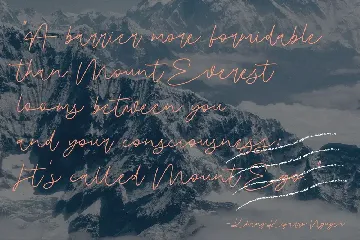 "A barrier more formidable
than Mount Everest
looms between you
and your consciousness.
It's called Mount Ego"